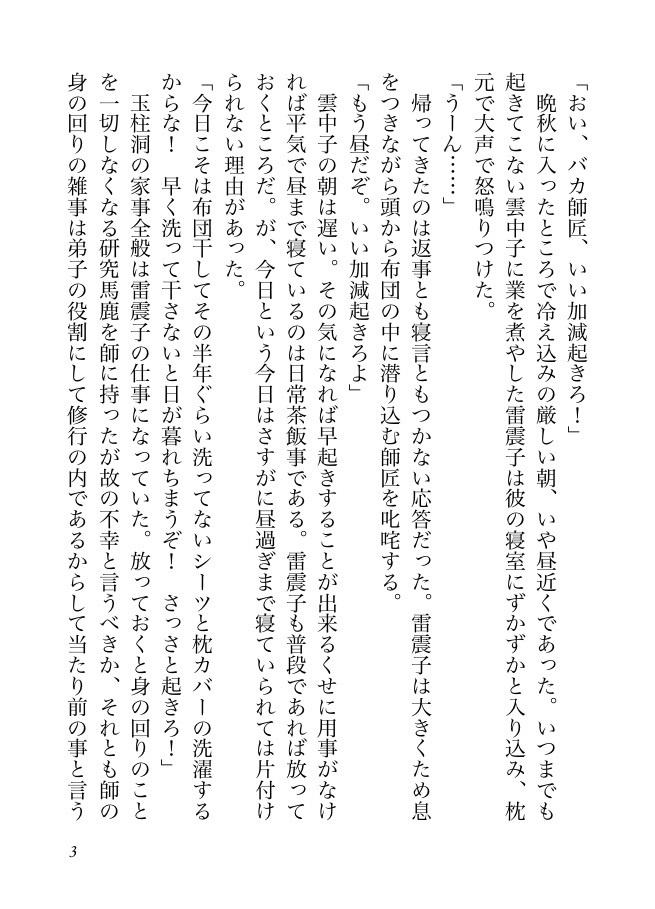 「おい、バカ師匠、いい加減起きろ！」
　晩秋に入ったところで冷え込みの厳しい朝、いや昼近くであった。いつまでも
起きてこない雲中子に業を煮やした雷震子は彼の寝室にずかずかと入り込み、枕
元で大声で怒鳴りつけた。
「うーん……」
　帰ってきたのは返事とも寝言ともつかない応答だった。雷震子は大きくため息
をつきながら頭から布団の中に潜り込む師匠を叱咤する。
「もう昼だぞ。いい加減起きろよ」
　雲中子の朝は遅い。その気になれば早起きすることが出来るくせに用事がなけ
れば平気で昼まで寝ているのは日常茶飯事である。雷震子も普段であれば放って
おくところだ。が、今日という今日はさすがに昼過ぎまで寝ていられては片付け
られない理由があった。
「今日こそは布団干してその半年ぐらい洗ってないシーツと枕カバーの洗濯する
からな！　早く洗って干さないと日が暮れちまうぞ！　さっさと起きろ！」
　玉柱洞の家事全般は雷震子の仕事になっていた。放っておくと身の回りのこと
を一切しなくなる研究馬鹿を師に持ったが故の不幸と言うべきか、それとも師の
身の回りの雑事は弟子の役割にして修行の内であるからして当たり前の事と言う
3